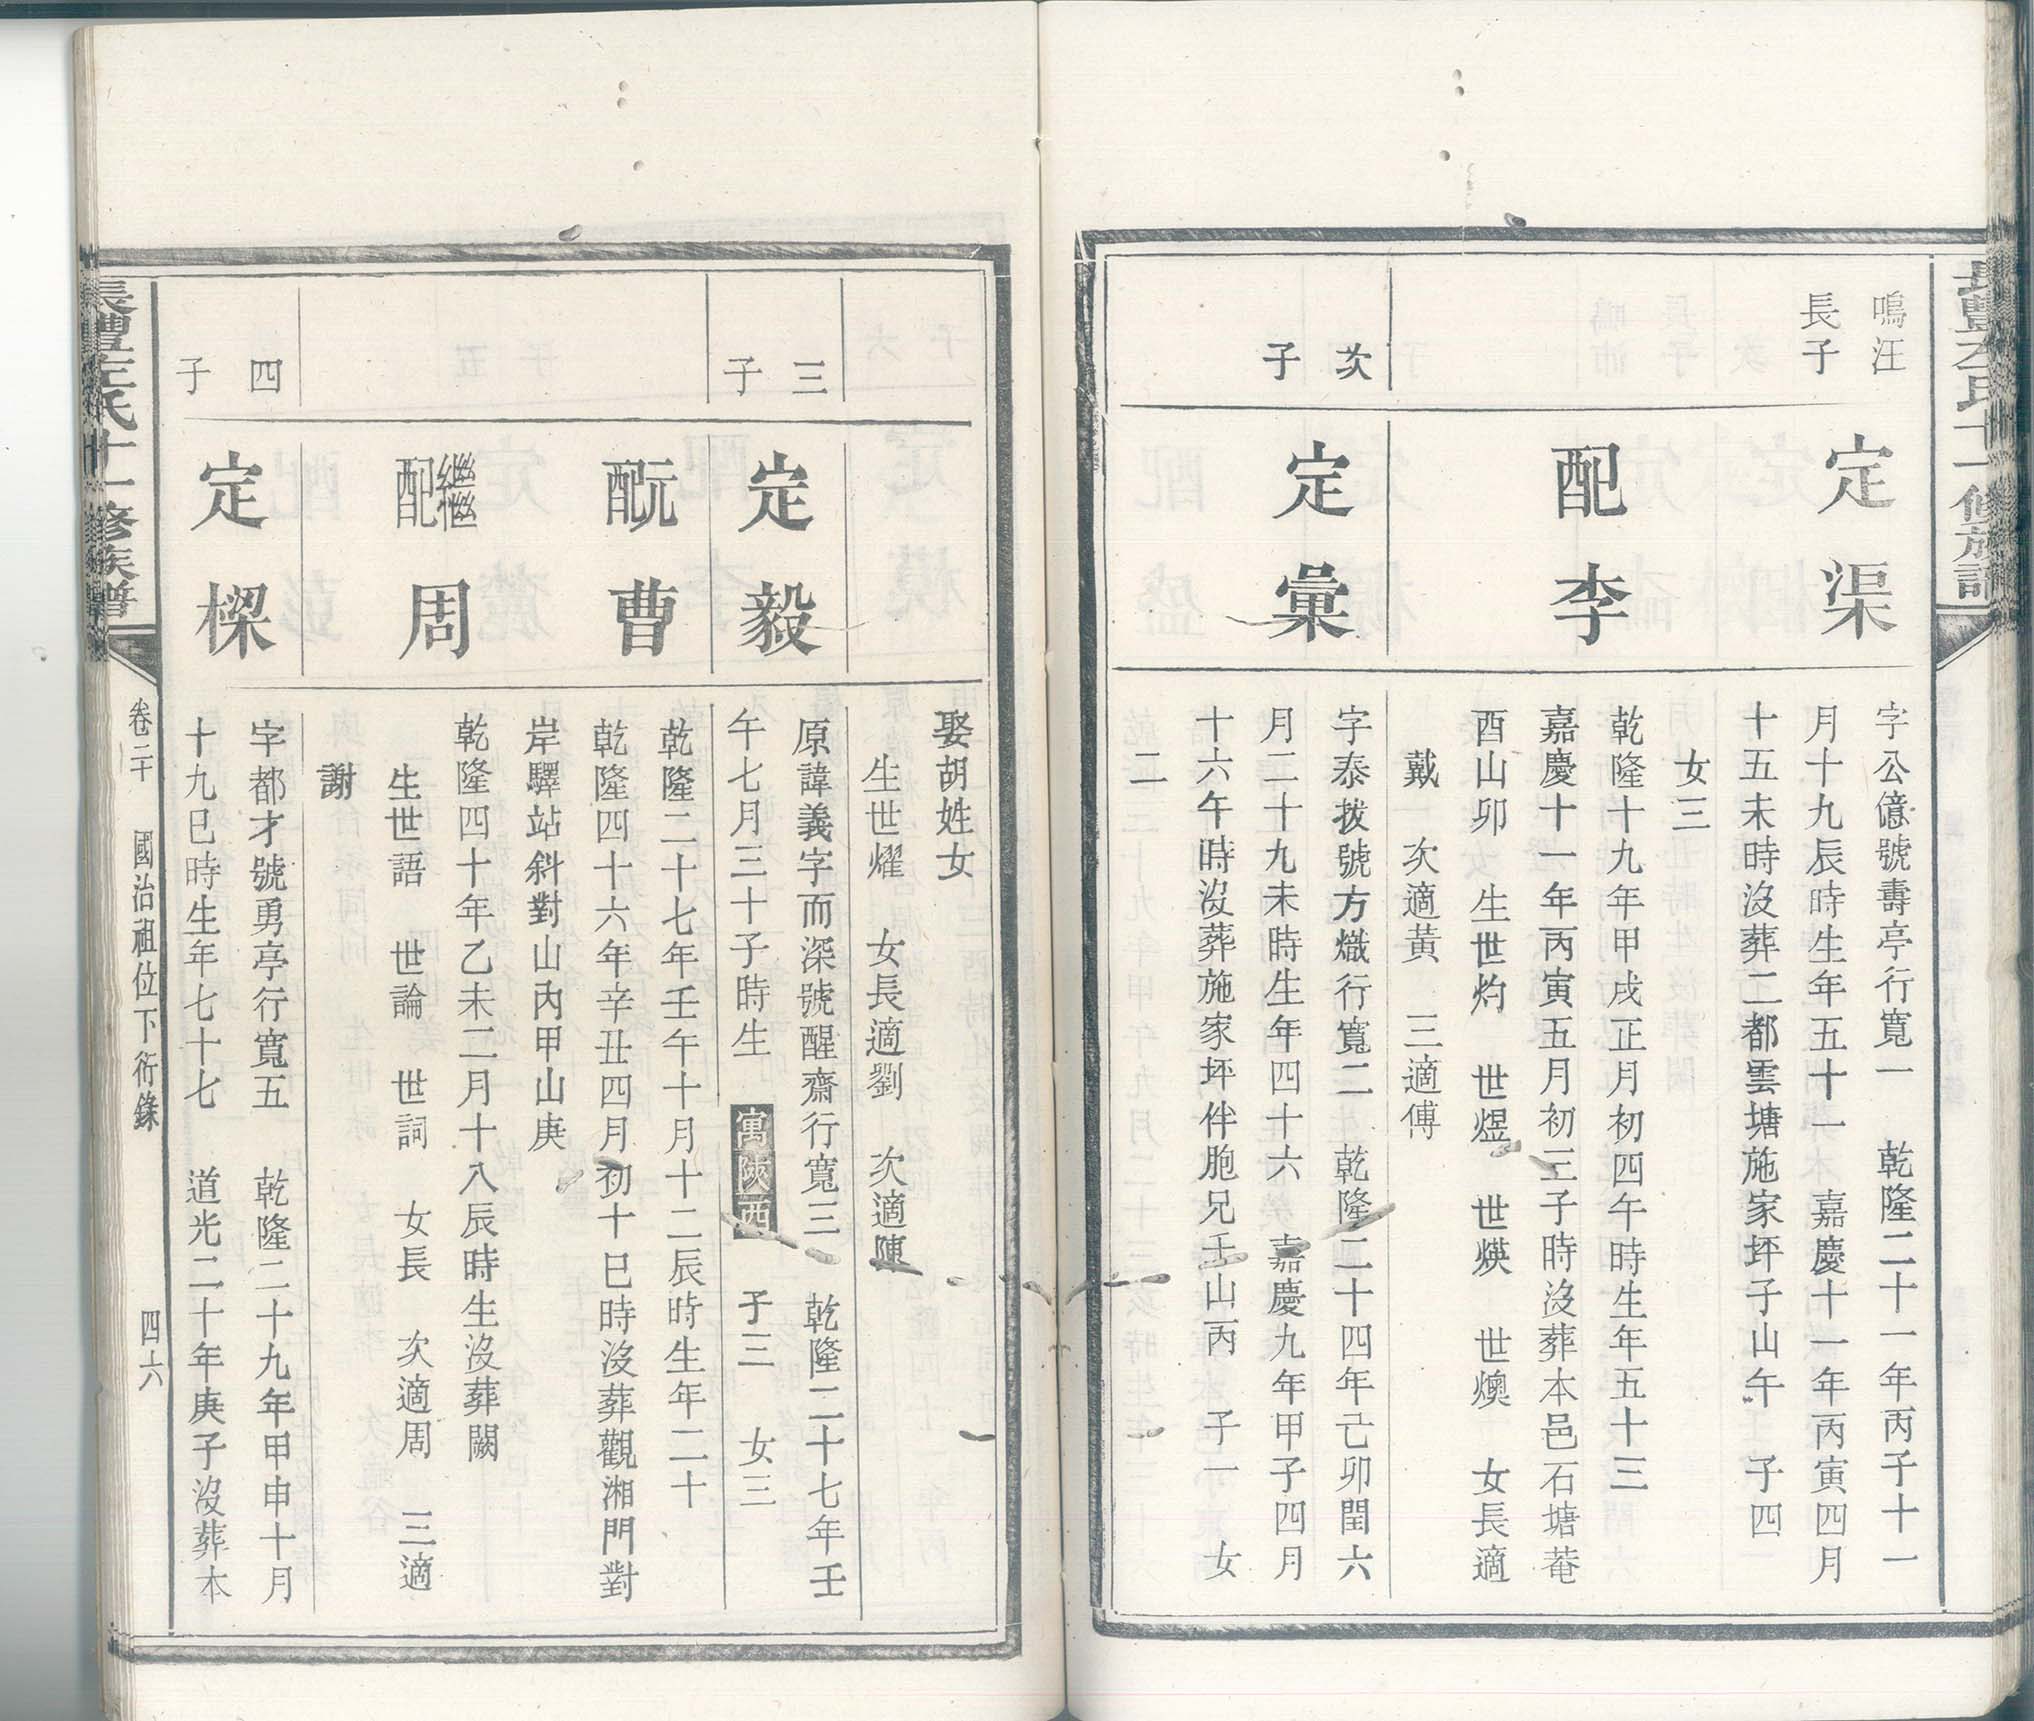 鳴汪
長子
定渠
字公億號壽亭行寬一　乾隆二十一年丙子十一
月十九辰時生年五十一　嘉慶十一年丙寅四月
十五未時沒葬二都雲塘施家坪子山午　子四
女三
配李
乾隆十九年甲戌正月初四午時生年五十三
嘉慶十一年丙寅五月初三子時沒葬本邑石塘菴
酉山卯　生世灼　世煜　世煐　世燠　女長適
戴　次適黃　三適傅
次子
定彙
字泰拔號方熾行寬二　乾隆二十四年己卯閏六
月二十九未時生年四十六　嘉慶九年甲子四月
十六午時沒葬施家坪伴胞兄壬山丙　子一　女
二
娶胡姓女
生世燿　女長適劉　次適陳
三子
定毅
原諱義字而深號醒齋行寬三　乾隆二十七年壬
午七月三十子時生　寓陝西　子三　女三
元配曹
乾隆二十七年壬午十月十二辰時生年二十
乾隆四十六年辛丑四月初十巳時沒葬觀湘門對
岸驛站斜對山丙甲山庚
繼配周
乾隆四十年乙未二月十八辰時生沒葬闕
生世語　世論　世詞　女長　次適周　三適
謝
四子
定樑
字都才號勇亭行寬五　乾隆二十九年甲申十月
十九巳時生年七十七　道光二十年庚子沒葬本
左氏十一修族譜
卷二十　國治祖位下衍錄　四六